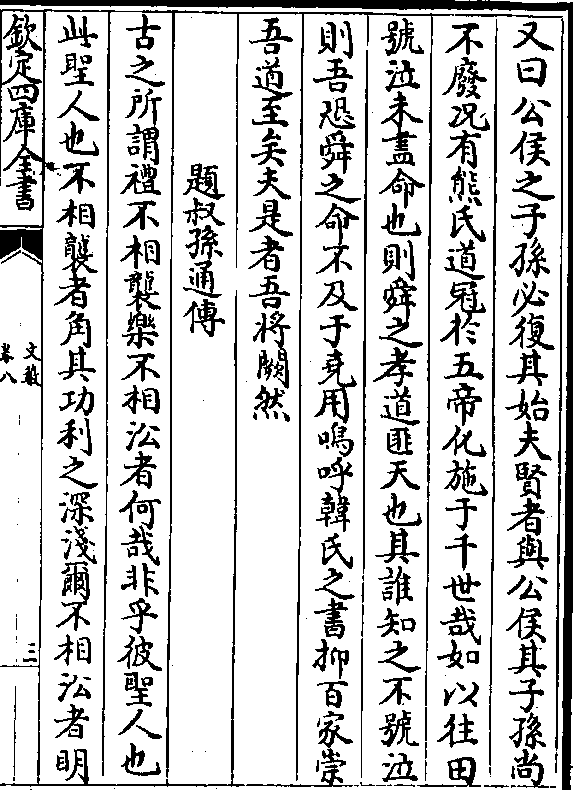 又曰公侯之子孫必復其始夫賢者與公侯其子孫尚
不廢况有熊氏道冠於五帝化施于千世哉如以往田
號泣未盡命也則舜之孝道匪天也其誰知之不號泣
則吾恐舜之命不及于堯用嗚呼韓氏之書抑百家崇
吾道至矣夫是者吾將闕然
題叔孫通傳
古之所謂禮不相襲樂不相㳂者何哉非乎彼聖人也
此聖人也不相襲者角其功利之深淺爾不相㳂者明
欽定四庫全書
文藪
卷八
三